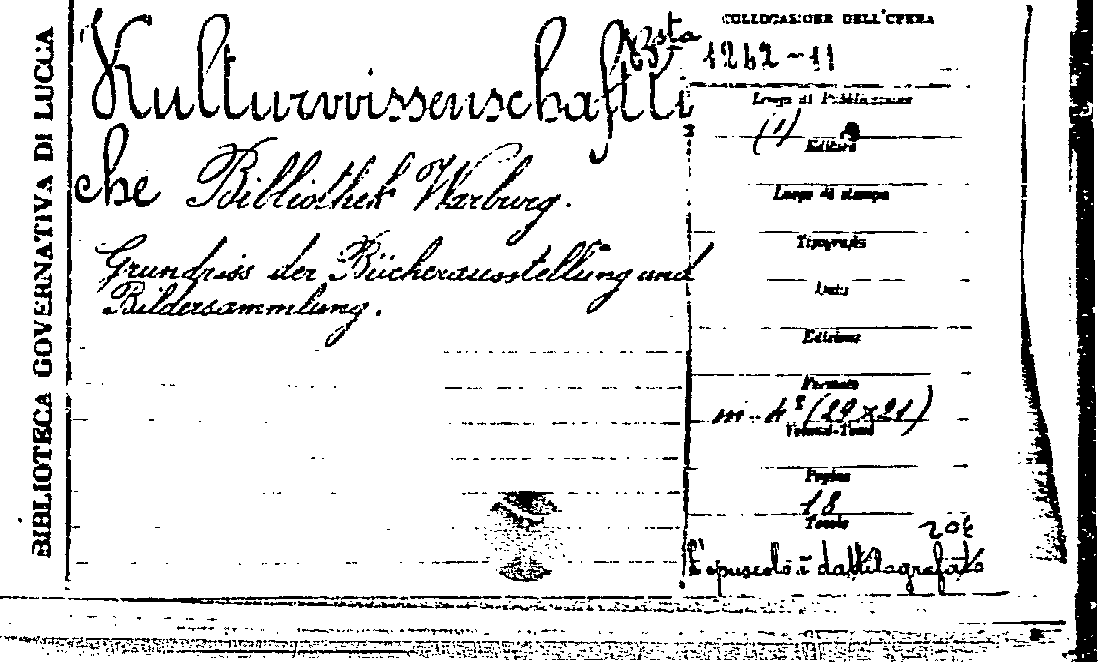 BIBLIOTECA GOVERNATIVA DI LUCCA
Kulturwissenschaftli
che Bibliothek Warburg.
Grundriss der Bücherausstellung und
Bildersammlung.
COLLOCAZIONE DELL'OPERA
Bsta 1262-11
Luogo di Pubblicazione
(1)
Editore
Luogo di stampa
Tipografo
Data
Edizione
Formato
in-4° (29x21)
Volumi-Tomi
Pagine
18
Tavole
L'opuscolo è dattilografato